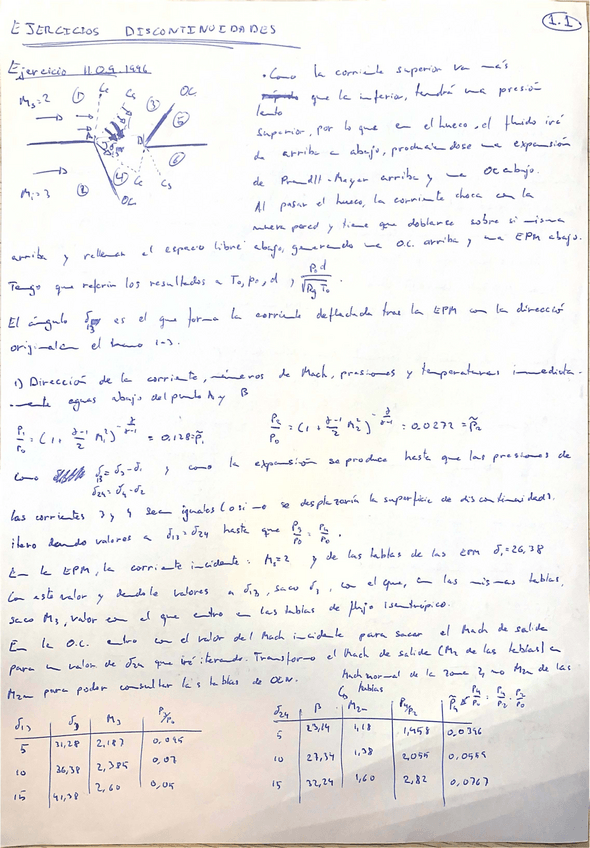 EJERCICIOS DISCONTINUIDADES
1.1
Ejercicio 11.09.1996
M1=2 ① Ce Cs ③ OC ⑤
A B ⑥
M2=3 ② ④ OC Cc Cs
• Como la corriente superior va más
lento que la inferior, tendrá una presión
superior, por lo que en el hueco, el fluido irá
de arriba a abajo, produciendose una expansión
de Prandtl-Meyer arriba y una OC abajo.
Al pasar el hueco, la corriente choca con la
nueva pared y tiene que doblarse sobre si misma
arriba y rellenar el espacio libre abajo, generando una O.C. arriba y una EPM abajo.
Tengo que referir los resultados a T0, p0, d, P0 d / √(Rg T0).
El ángulo δ13 es el que forma la corriente deflectada tras la EPM con la dirección
original en el tramo 1-3.
1) Dirección de la corriente, números de Mach, presiones y temperaturas inmediata-
-mente aguas abajo del punto A y B
P1/P0 = (1+ γ-1/2 M1²)^-γ/γ-1 = 0.128 = p̃1 P2/P0 = (1+ γ-1/2 M2²)^-γ/γ-1 = 0.0272 = p̃2
como δ13 = δ3-δ1 y como la expansión se produce hasta que las presiones de
δ24 = δ4-δ2
las corrientes 3 y 4 sean iguales (o si no se desplazaría la superficie de discontinuidad).
itero dando valores a δ13=δ24 hasta que P3/P0 = P4/P0.
En la EPM, la corriente incidente: M1=2 y de las tablas de las EPM δ1=26,38
Con este valor y dandole valores a δ13, saco δ3, con el que, en las mismas tablas,
saco M3, valor con el que entro en las tablas de flujo Isentrópico.
En la O.C. entro con el valor del Mach incidente para sacar el Mach de salida
para un valor de δ24 que iré iterando. Transformo el Mach de salida (M2 de las tablas) en
M2n para poder consultar las tablas de OCN.
Mach normal de la zona 2, no M2n de las
tablas
δ13 δ3 M3 P3/P0
5 31,38 2,187 0,095
10 36,38 2,385 0,07
15 41,38 2,60 0,05
δ24 β M2n P4/P2 p̃4 = P4/P0 = P4/P2 · P2/P0
5 23,14 1,18 1,458 0,0396
10 27,34 1,38 2,055 0,0555
15 32,24 1,60 2,82 0,0767